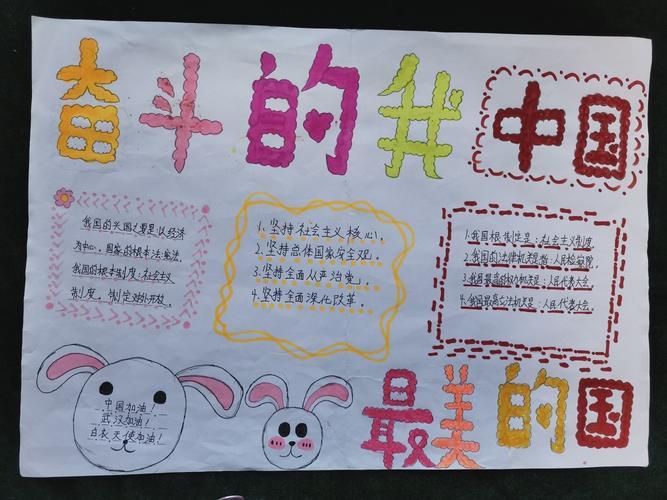 奋斗的我 中国
我国的兴国之要是:以经济
为中心。国家的根本法:宪法
我国的根本制度:社会主义
制度。制定对外开放。
1、坚持社会主义核心。
2、坚持总体国家安全观。
3、坚持全面从严治党。
4、坚持全面深化改革。
1、我国根本制度是:社会主义制度
2、我国的法律机关是指:人民检察院。
3、我国最高的权力机关是:人民代表大会
4、我国最高立法机关是:人民代表大会。
中国加油!
武汉加油!
白衣天使加油!
最美的国